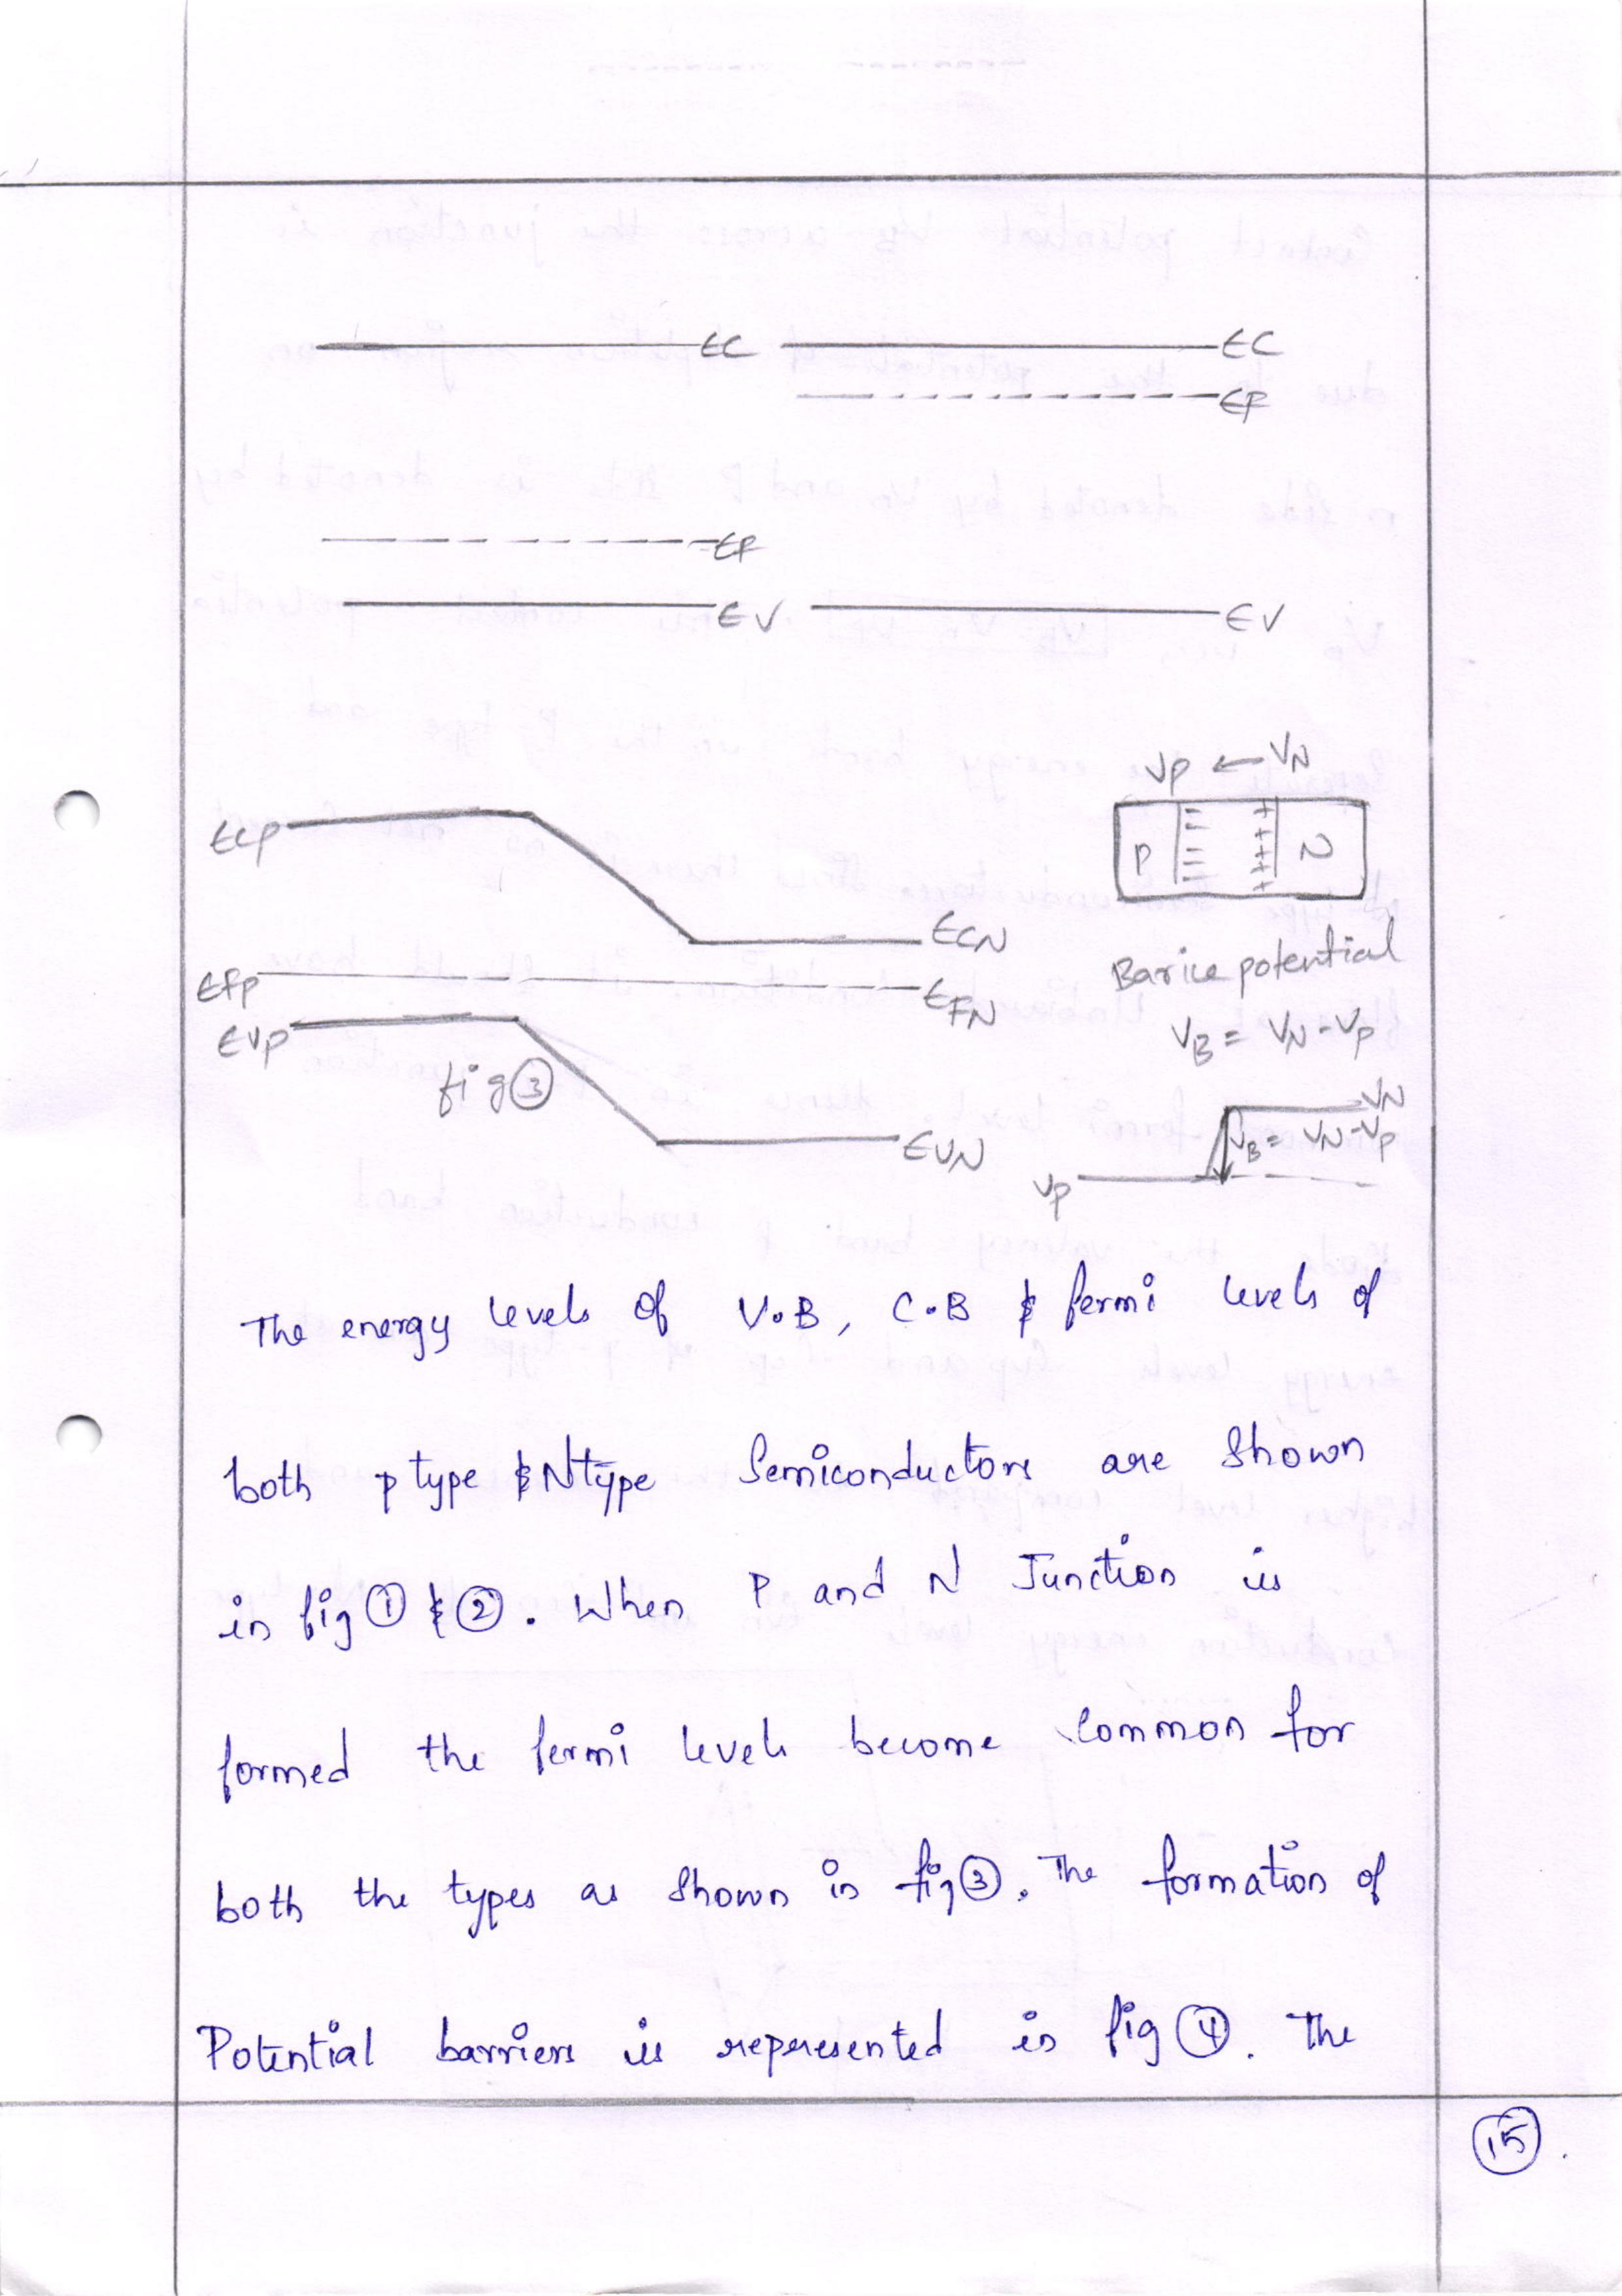 EC EC
EF
EF
EV EV
VP ← VN
P N
ECP
ECN
Barice potential
EFP
EFN
EVP
VB = VN - VP
fig ③
VN
VB = VN - VP
EVN
VP
The energy levels of V.B, C.B & fermi levels of
both p type & N type Semiconductors are shown
in fig ① & ②. When P and N Junction is
formed the fermi levels become common for
both the types as shown in fig ③. The formation of
Potential barriers is represented in fig ④. The
15.